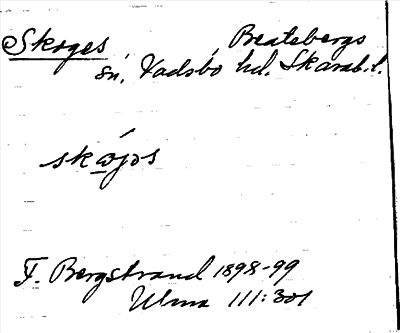 Skoges Beatebergs
sn, Vadsbo hd. Skarab. l.
skòjos
F. Bergstrand 1898-99
Ulma 111:301